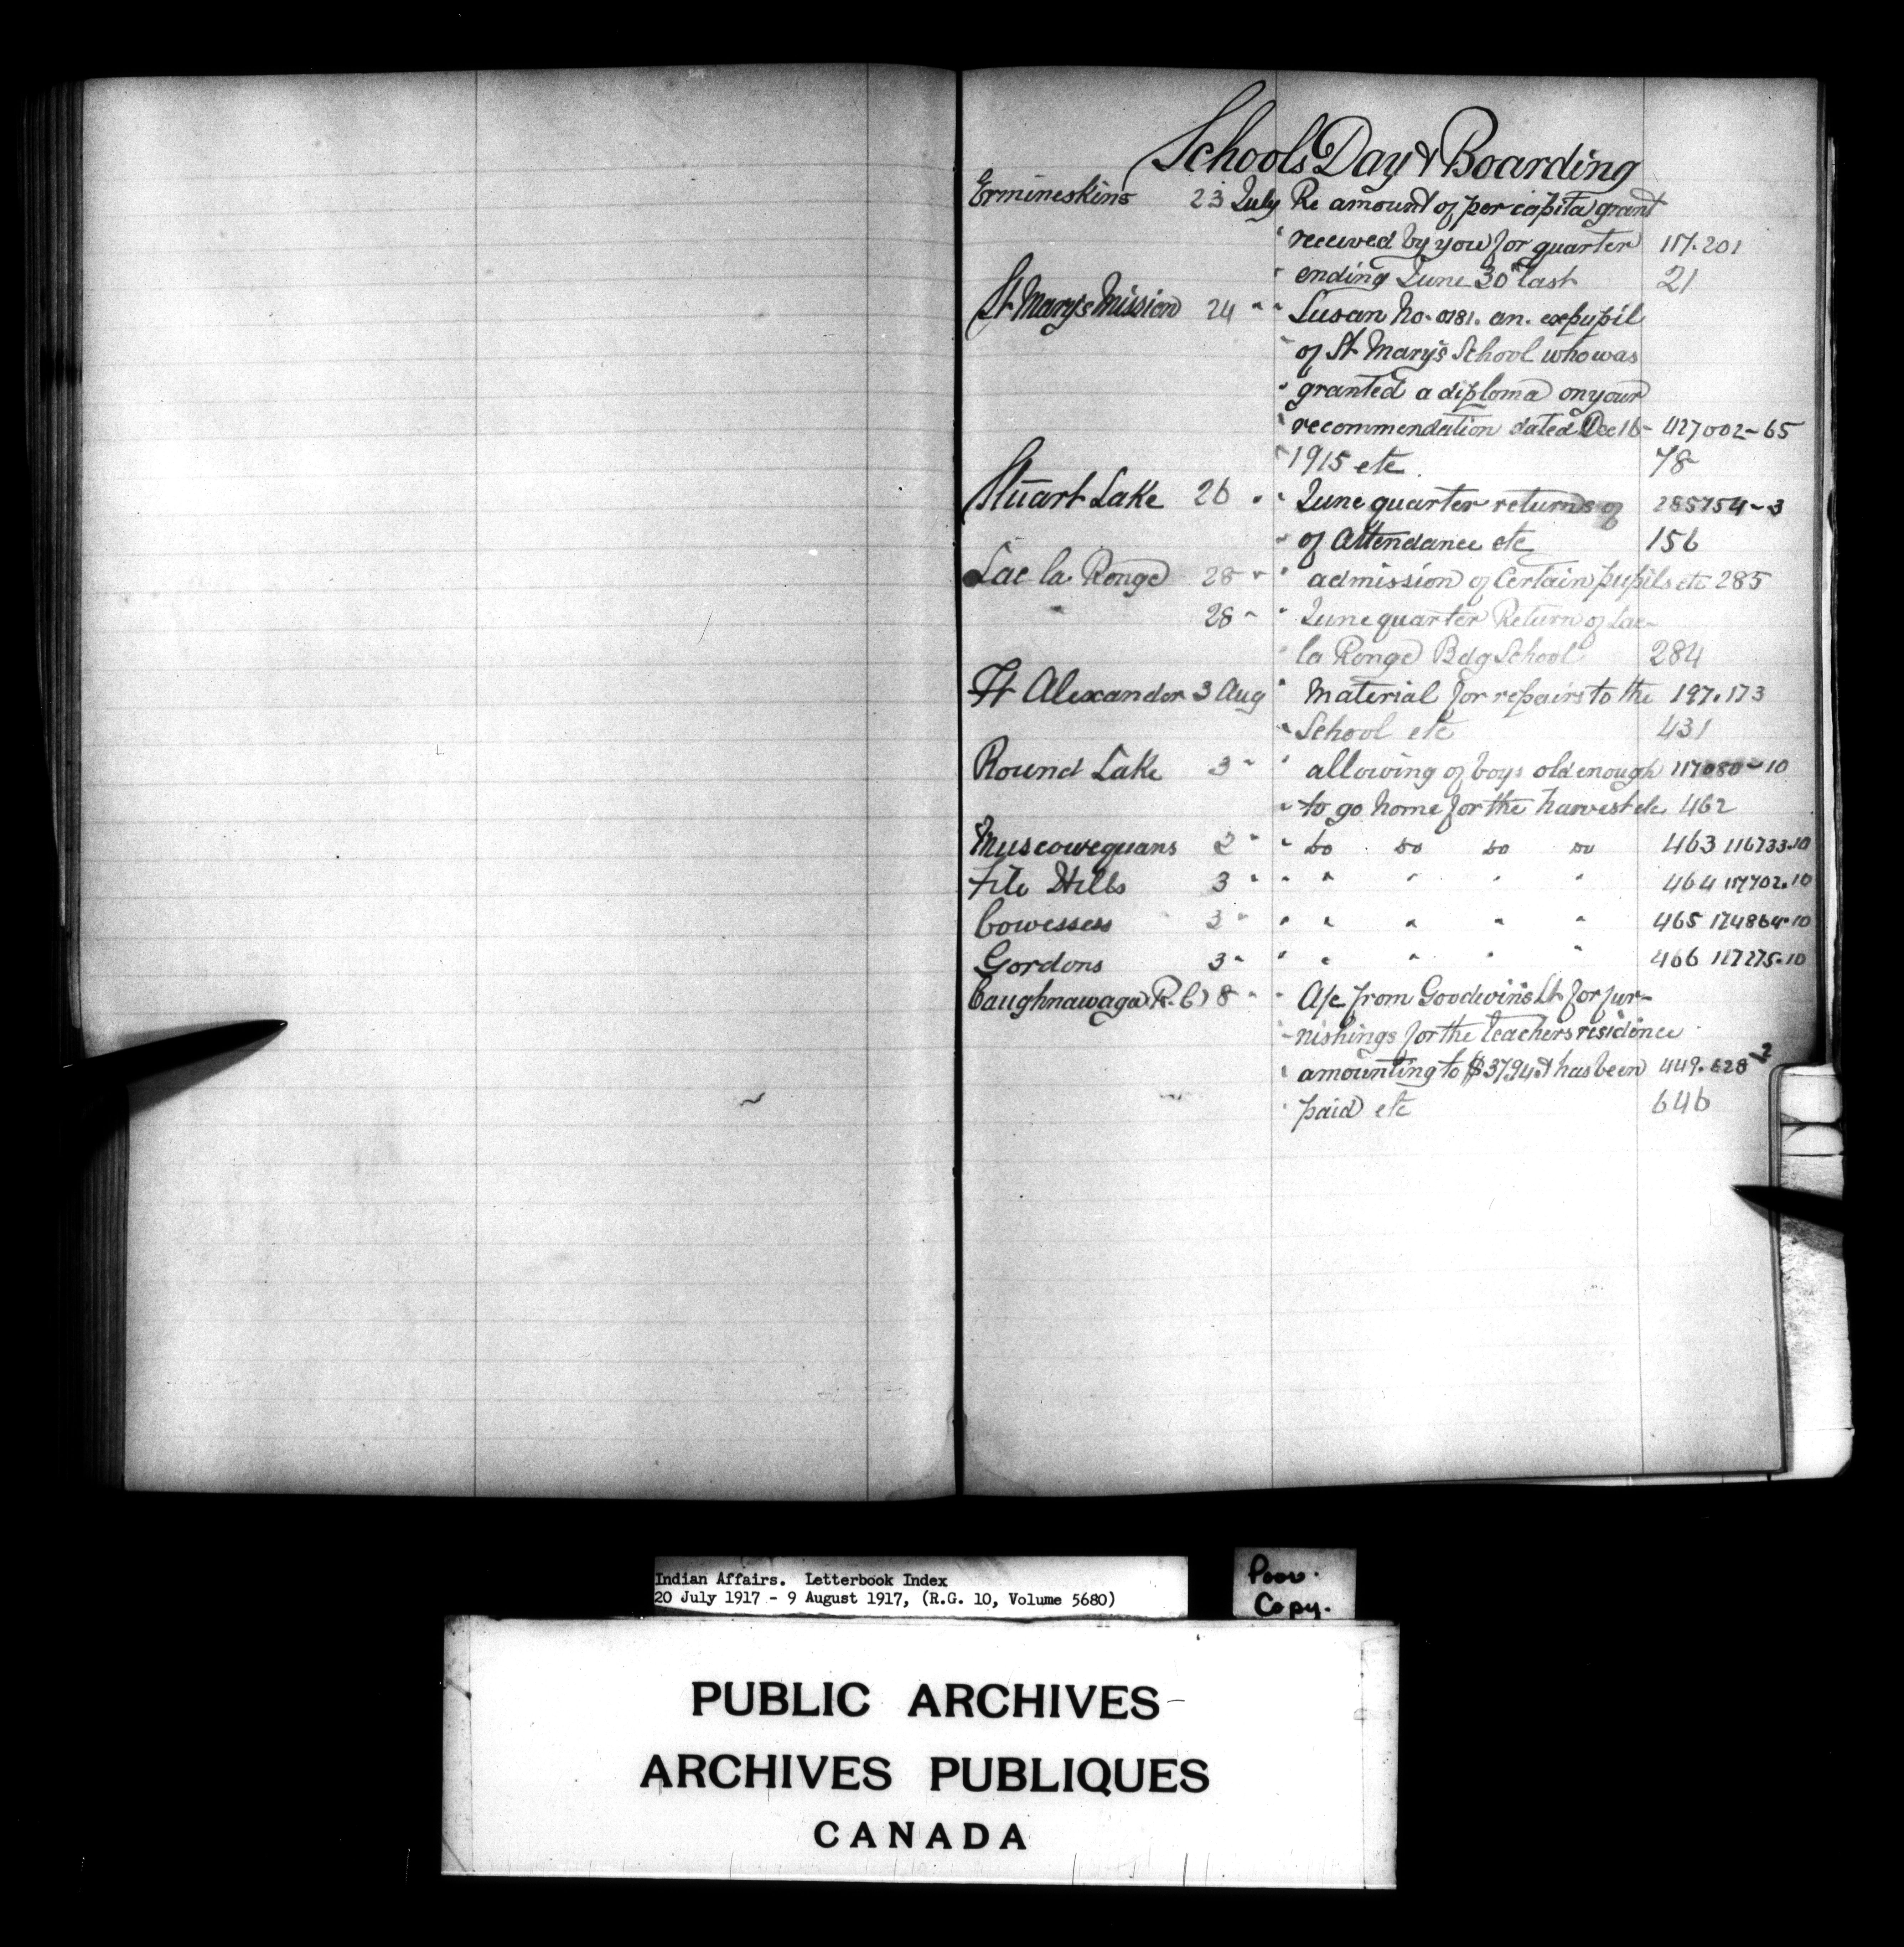 Schools Day & Boarding
Ermineskins 23 July Re amount of per capita grant
" received by you for quarter 117.201
" ending June 30th last 21
St Mary's Mission 24 " " Susan No. 0181. an. expupil
" of St Mary's School who was
" granted a diploma on your
" recommendation dated Dec 16 - 427002-65
" 1915 etc. 78
Stuart Lake 26 " " June quarter returns of 285754-3
" of Attendance etc 156
Lac la Ronge 28 " " admission of Certain pupils etc 285
" 28 " " June quarter Return of Lac-
" la Ronge Bdg School 284
Ft Alexander 3 Aug " Material for repairs to the 197.173
" School etc 431
Round Lake 3 " " allowing of boys old enough 117080-10
" to go home for the harvest etc 462
Muscowequans 2 " " Do Do Do Do 463 116733-10
File Hills 3 " " " " " " 464 117702.10
Cowessess 3 " " " " " " 465 174864-10
Gordons 3 " " " " " " 466 117275-10
Caughnawaga (R.C) 8 " " A/c from Goodwins Lt for fur-
" nishings for the teachers residence
" amounting to $37.94 & has been 449.628-2
" paid etc 646
Indian Affairs. Letterbook Index
20 July 1917 - 9 August 1917, (R.G. 10, Volume 5680)
Poor.
Copy.
PUBLIC ARCHIVES
ARCHIVES PUBLIQUES
CANADA